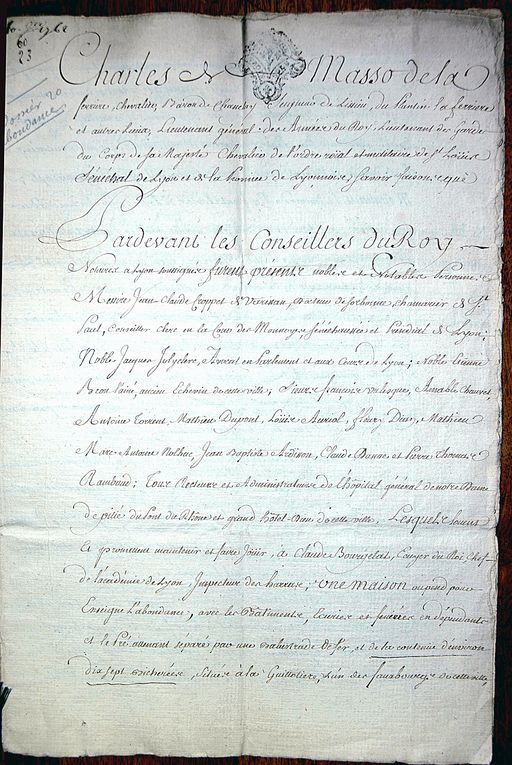 1762
60
23
Dossier 20
abondance
Charles de Masso de la
ferriere, chevalier, Baron de Chamelet, Seigneur de Lissieu, du Plantin, la ferriere
et autres Lieux, Lieutenant général des Armées du Roy, Lieutenant des Gardes
du Corps de sa Majesté, Chevalier de l'ordre roial et militaire de St Loüis
Sénéchal de Lyon et de la Province de Lyonnois, Sçavoir faisons que
Pardevant les Conseillers du Roy
Notaires à Lyon soussignés furent présents nobles et Notables Personnes
Messire Jean Claude Croppet de Varissan, Docteur de Sorbonne, chamarier de St
Paul, Conseiller clerc en la Cour des Monnoyes, Sénéchaussée et Présidial de Lyon;
Noble Jacques Jolyclerc, Avocat en Parlement et aux Cours de Lyon; Noble Etienne
Bron l'ainé, ancien Echevin de cette ville; Sieurs françois Valesque, Amable Chauvet
Antoine Torrent, Mathieu Dupont, Loüis Auriol, fleury Dian, Mathieu
Marc Antoine Nolhac, Jean Baptiste Ardisson, Claude Bonne et Pierre Thomas
Rambaud; Tous Recteurs et Administrateurs de l'hôpital général de notre Dame
de pitié du Pont du Rhône et grand hôtel-Dieu de cette ville, Lesquels
Et promettent maintenir et faire Joüir, à Claude Bourgelat, Ecuyer du Roi, Chef
de l'académie de Lyon, Inspecteur des harras; Une Maison ayant pour
Enseigne l'abondance, avec les Bâtiments, Ecuries et fenières en dépendants
et le Pré attenant séparé par une balustrade de fer, et de la contenue d'environ
dix sept bicherées, située à la Guillotière, l'un des fauxbourgs de cette ville,